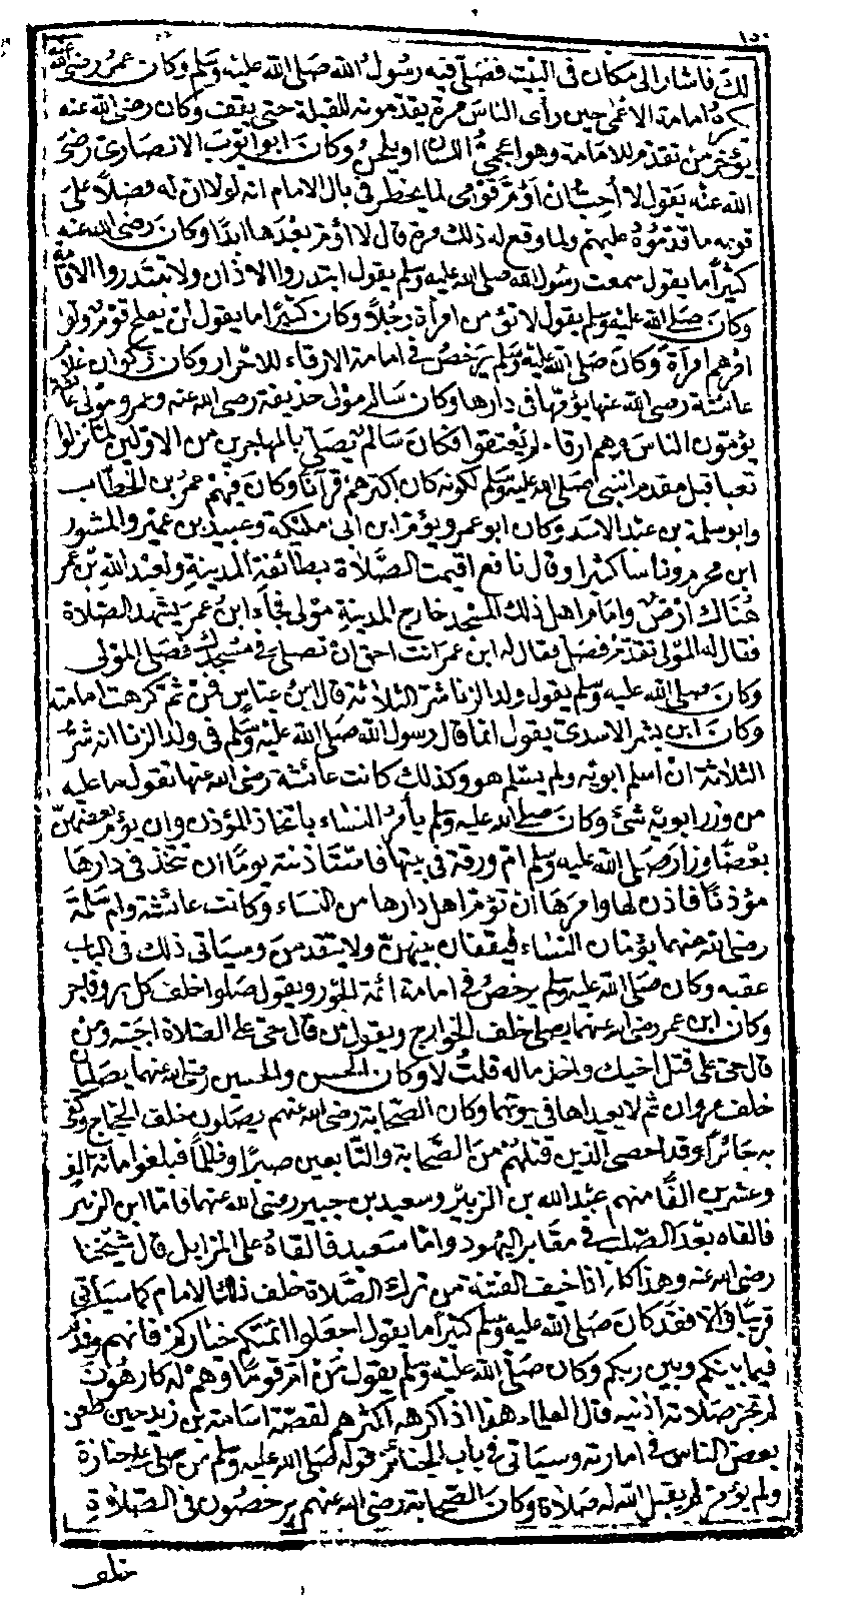 ١٥٠
لك فاشار الى مكان في البيت فصلى فيه رسول الله صلى الله عليه وسلم وكان عمر رضى الله عنه
يكره امامة الاعمى حين رأى الناس مرة يقدمونه للقبلة حتى يقف وكان رضى الله عنه
يؤخر من تقدم للامامة وهو اعجمى اللسان او يلحن وكان ابو ايوب الانصارى رضى
الله عنه يقول لا احب ان اؤم قومى لما يخطر في بال الامام انه لولا ان له فضلا على
قومه ما قدموه عليهم ولما وقع له ذلك مرة قال لا اؤم بعدها ابدا وكان رضى الله عنه
كثيرا ما يقول سمعت رسول الله صلى الله عليه وسلم يقول ابتدروا الاذان ولا تبتدروا الاقامة
وكان صلى الله عليه وسلم يقول لا تؤمن امرأة رجلا وكان كثيرا ما يقول لن يفلح قوم ولوا
امرهم امرأة وكان صلى الله عليه وسلم يرخص في امامة الارقاء للاحرار وكان ذكوان غلام
عائشة رضى الله عنها يؤمها في دارها وكان سالم مولى حذيفة رضى الله عنه وعمرو مولى عائشة
يؤمون الناس وهم ارقاء لم يعتقوا فكان سالم يصلى بالمهاجرين من الاولين لما نزلوا
بقبا قبل مقدم النبي صلى الله عليه وسلم لكونه كان اكثرهم قرآنا وكان فيهم عمر بن الخطاب
وابو سلمة بن عبد الاسد وكان ابو عمرو يؤم ابن ابى مليكة وعبيد بن عمير والمسور
ابن مخرمة وناسا كثيرا وقال نافع اقيمت الصلاة بطائفة المدينة ولعبد الله بن عمر
هناك ارض وامام اهل ذلك المسجد خارج المدينة مولى فجاء ابن عمر يشهد الصلاة
فقال له المولى تقدم فصل فقال له ابن عمر انت احق ان تصلى في مسجدك فصلى المولى
وكان صلى الله عليه وسلم يقول ولد الزنا شر الثلاثة قال ابن عباس فمن ثم كرهت امامته
وكان ابن بشر الاسدى يقول انما قال رسول الله صلى الله عليه وسلم في ولد الزنا انه شر
الثلاثة ان اسلم ابويه ولم يسلم هو وكذلك كانت عائشة رضى الله عنها تقول ما عليه
من وزر ابويه شئ وكان صلى الله عليه وسلم يأمر النساء باتخاذ المؤذن وان يؤم بعضهن
بعضا وزار صلى الله عليه وسلم ام ورقة في بيتها فاستأذنته يوما ان تتخذ في دارها
مؤذنا فاذن لها وامرها ان تؤم اهل دارها من النساء وكانت عائشة وام سلمة
رضى الله عنهما يؤمان النساء فيقفان بينهن ولا يتقدمن وسيأتى ذلك في الباب
عقبه وكان صلى الله عليه وسلم يرخص في امامة ائمة الجور ويقول صلوا خلف كل بر وفاجر
وكان ابن عمر رضى الله عنهما يصلى خلف الخوارج ويقول من قال حى على الصلاة اجبته ومن
قال حى على قتل اخيك واخذ ماله قلت لا وكان الحسن والحسين رضى الله عنهما يصليان
خلف مروان ثم لا يعيداها في بيوتهما وكان الصحابة رضى الله عنهم يصلون خلف الحجاج وكفى
به جائرا وقد احصى الذين قتلهم من الصحابة والتابعين صبرا وظلما فبلغوا مائة الف
وعشرين الفا منهم عبد الله بن الزبير وسعيد بن جبير رضى الله عنهما فاما ابن الزبير
فالقاه بعد الصلب في مقابر اليهود واما سعيد فالقاه على المزابل قال شيخنا
رضى الله عنه وهذا كان اذا خيف الفتنة من ترك الصلاة خلف ذلك الامام كما سيأتى
قريبا والا فقد كان صلى الله عليه وسلم كثيرا ما يقول اجعلوا ائمتكم خياركم فانهم وفدكم
فيما بينكم وبين ربكم وكان صلى الله عليه وسلم يقول من ام قوما وهم له كارهون
لم تجز صلاته اذنيه قال العلماء هذا اذا كرهه اكثرهم لقصة اسامة بن زيد حين طعن
بعض الناس في امارته وسيأتى في باب الجنائز قوله صلى الله عليه وسلم من صلى على جنازة
ولم يؤمر لم يقبل الله له صلاة وكان الصحابة رضى الله عنهم يرخصون في الصلاة
خلف